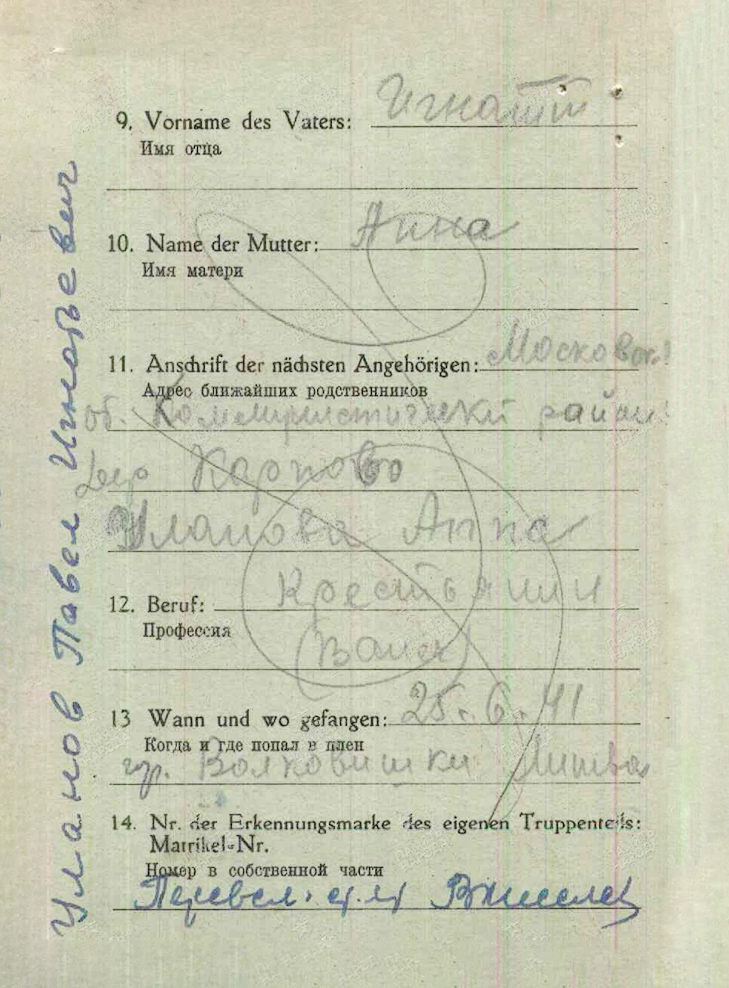 9. Vorname des Vaters: Игнатий
Имя отца
10. Name der Mutter: Анна
Имя матери
11. Anschrift der nächsten Angehörigen: Московск.
Адрес ближайших родственников
об. Коммунистический район
дер Карпово
Уланова Анна
12. Beruf: Крестьянин
Профессия
(Bauer)
13 Wann und wo gefangen: 25. 6. 41
Когда и где попал в плен
гр. Волковишки Литва
14. Nr. der Erkennungsmarke des eigenen Truppenteils:
Matrikel-Nr.
Номер в собственной части
Перевел:
Уланов Павел Игнатьевич